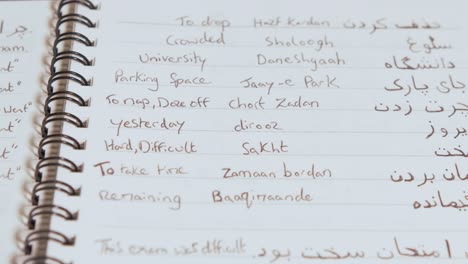 چرا
To drop Hazf Kardan حذف کردن
xam.
Crowded Sholoogh شلوغ
at"
University Daneshgaah دانشگاه
Parking Space Jaay-e Park جای پارک
at"
To nap, Doze off Chort Zadan چرت زدن
yesterday dirooz یروز
Hard, Difficult Sakht سخت
To take time Zamaan bordan مان بردن
Remaining Baaqimaande قیمانده
This exam was difficult. امتحان سخت بود.